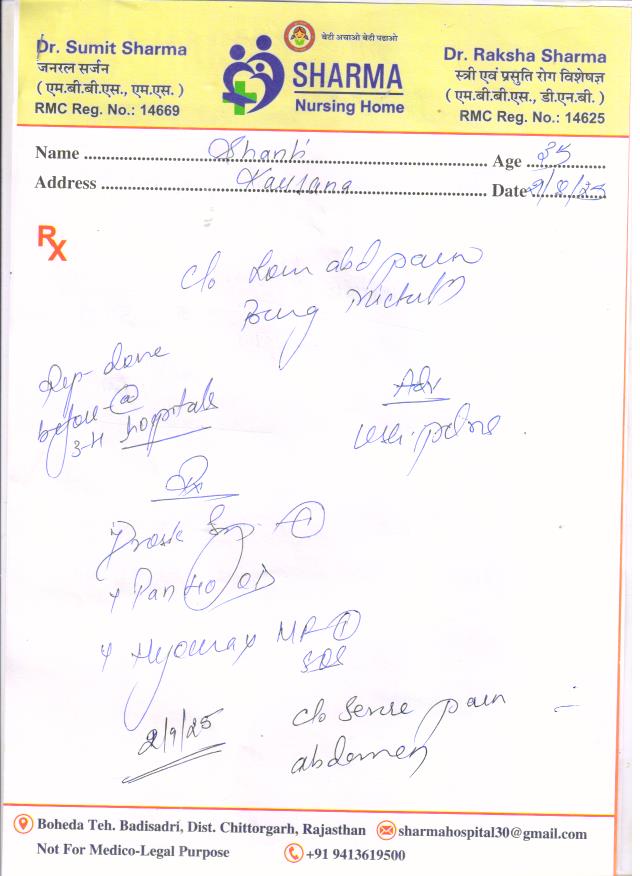 बेटी बचाओ बेटी पढाओ
Dr. Sumit Sharma
जनरल सर्जन
( एम.बी.बी.एस., एम.एस. )
RMC Reg. No.: 14669
SHARMA
Nursing Home
Dr. Raksha Sharma
स्त्री एवं प्रसुति रोग विशेषज्ञ
( एम.बी.बी.एस., डी.एन.बी. )
RMC Reg. No.: 14625
Name Shanti Age 35
Address Date 2/8/25
Rx
c/o Low abd pain
done
before @
3-4 hospitals
Adv
USG-pelvis
Rx
Syp.
Pan 40 OD
MR 1
SOS
2/9/25
c/o severe pain
abdomen
Boheda Teh. Badisadri, Dist. Chittorgarh, Rajasthan sharmahospital30@gmail.com
Not For Medico-Legal Purpose +91 9413619500